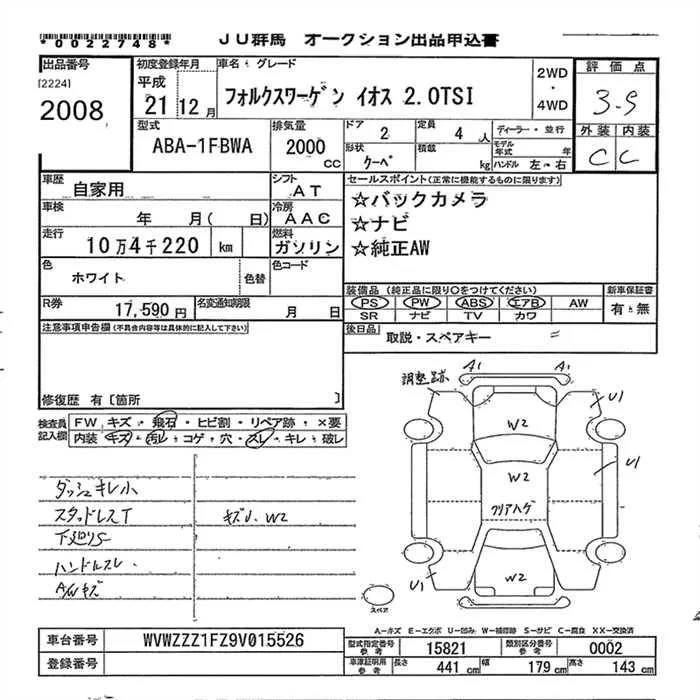 *0022748* JU群馬 オークション出品申込書
出品番号 初度登録年月 車名・グレード 2WD・4WD 評価点
[2224] 2008 平成 21年 12月 フォルクスワーゲン イオス 2.0TSI 3.5
型式 排気量 ドア 定員 ディーラー・並行 外装 内装
ABA-1FBWA 2000 CC 2 4人 モデル年式 年 C C
形状 積載 クーペ kg ハンドル 左・右
車歴 シフト セールスポイント(正常に機能するものに限ります)
自家用 AT ☆バックカメラ
車検 冷房 ☆ナビ
年 月( 日) AAC ☆純正AW
走行 燃料
10万4千220 km ガソリン
色 色替 色コード
ホワイト
装備品(純正品に限り○をつけてください) 新車保証書
PS PW ABS エアB AW 有・無
SR ナビ TV カワ
R券 名変通知期限
17,590円 月 日
後日品 取説・スペアキー =
注意事項申告欄(不具合内容等は具体的に記入して下さい)
修復歴 有〔箇所 〕
検査員記入欄 FW キズ・飛石・ヒビ割・リペア跡・×要
内装 キズ・汚レ・コゲ・穴・スレ・キレ・破レ
ダッシュキレ小
スタッドレスT キズ小 W2
下廻りS
ハンドルスレ
AWキズ
調整跡 A1 A1
U1
W2
U1
W2
クリアハゲ
W2
U1
スペア
A―キズ E―エクボ U―凹み W―補修跡 S―サビ C―腐食 XX―交換済
車台番号 WVWZZZ1FZ9V015526 型式指定番号 参考 15821 類別区分番号 参考 0002
登録番号 車庫証明用 参考 長さ 441 cm 幅 179 cm 高さ 143 cm